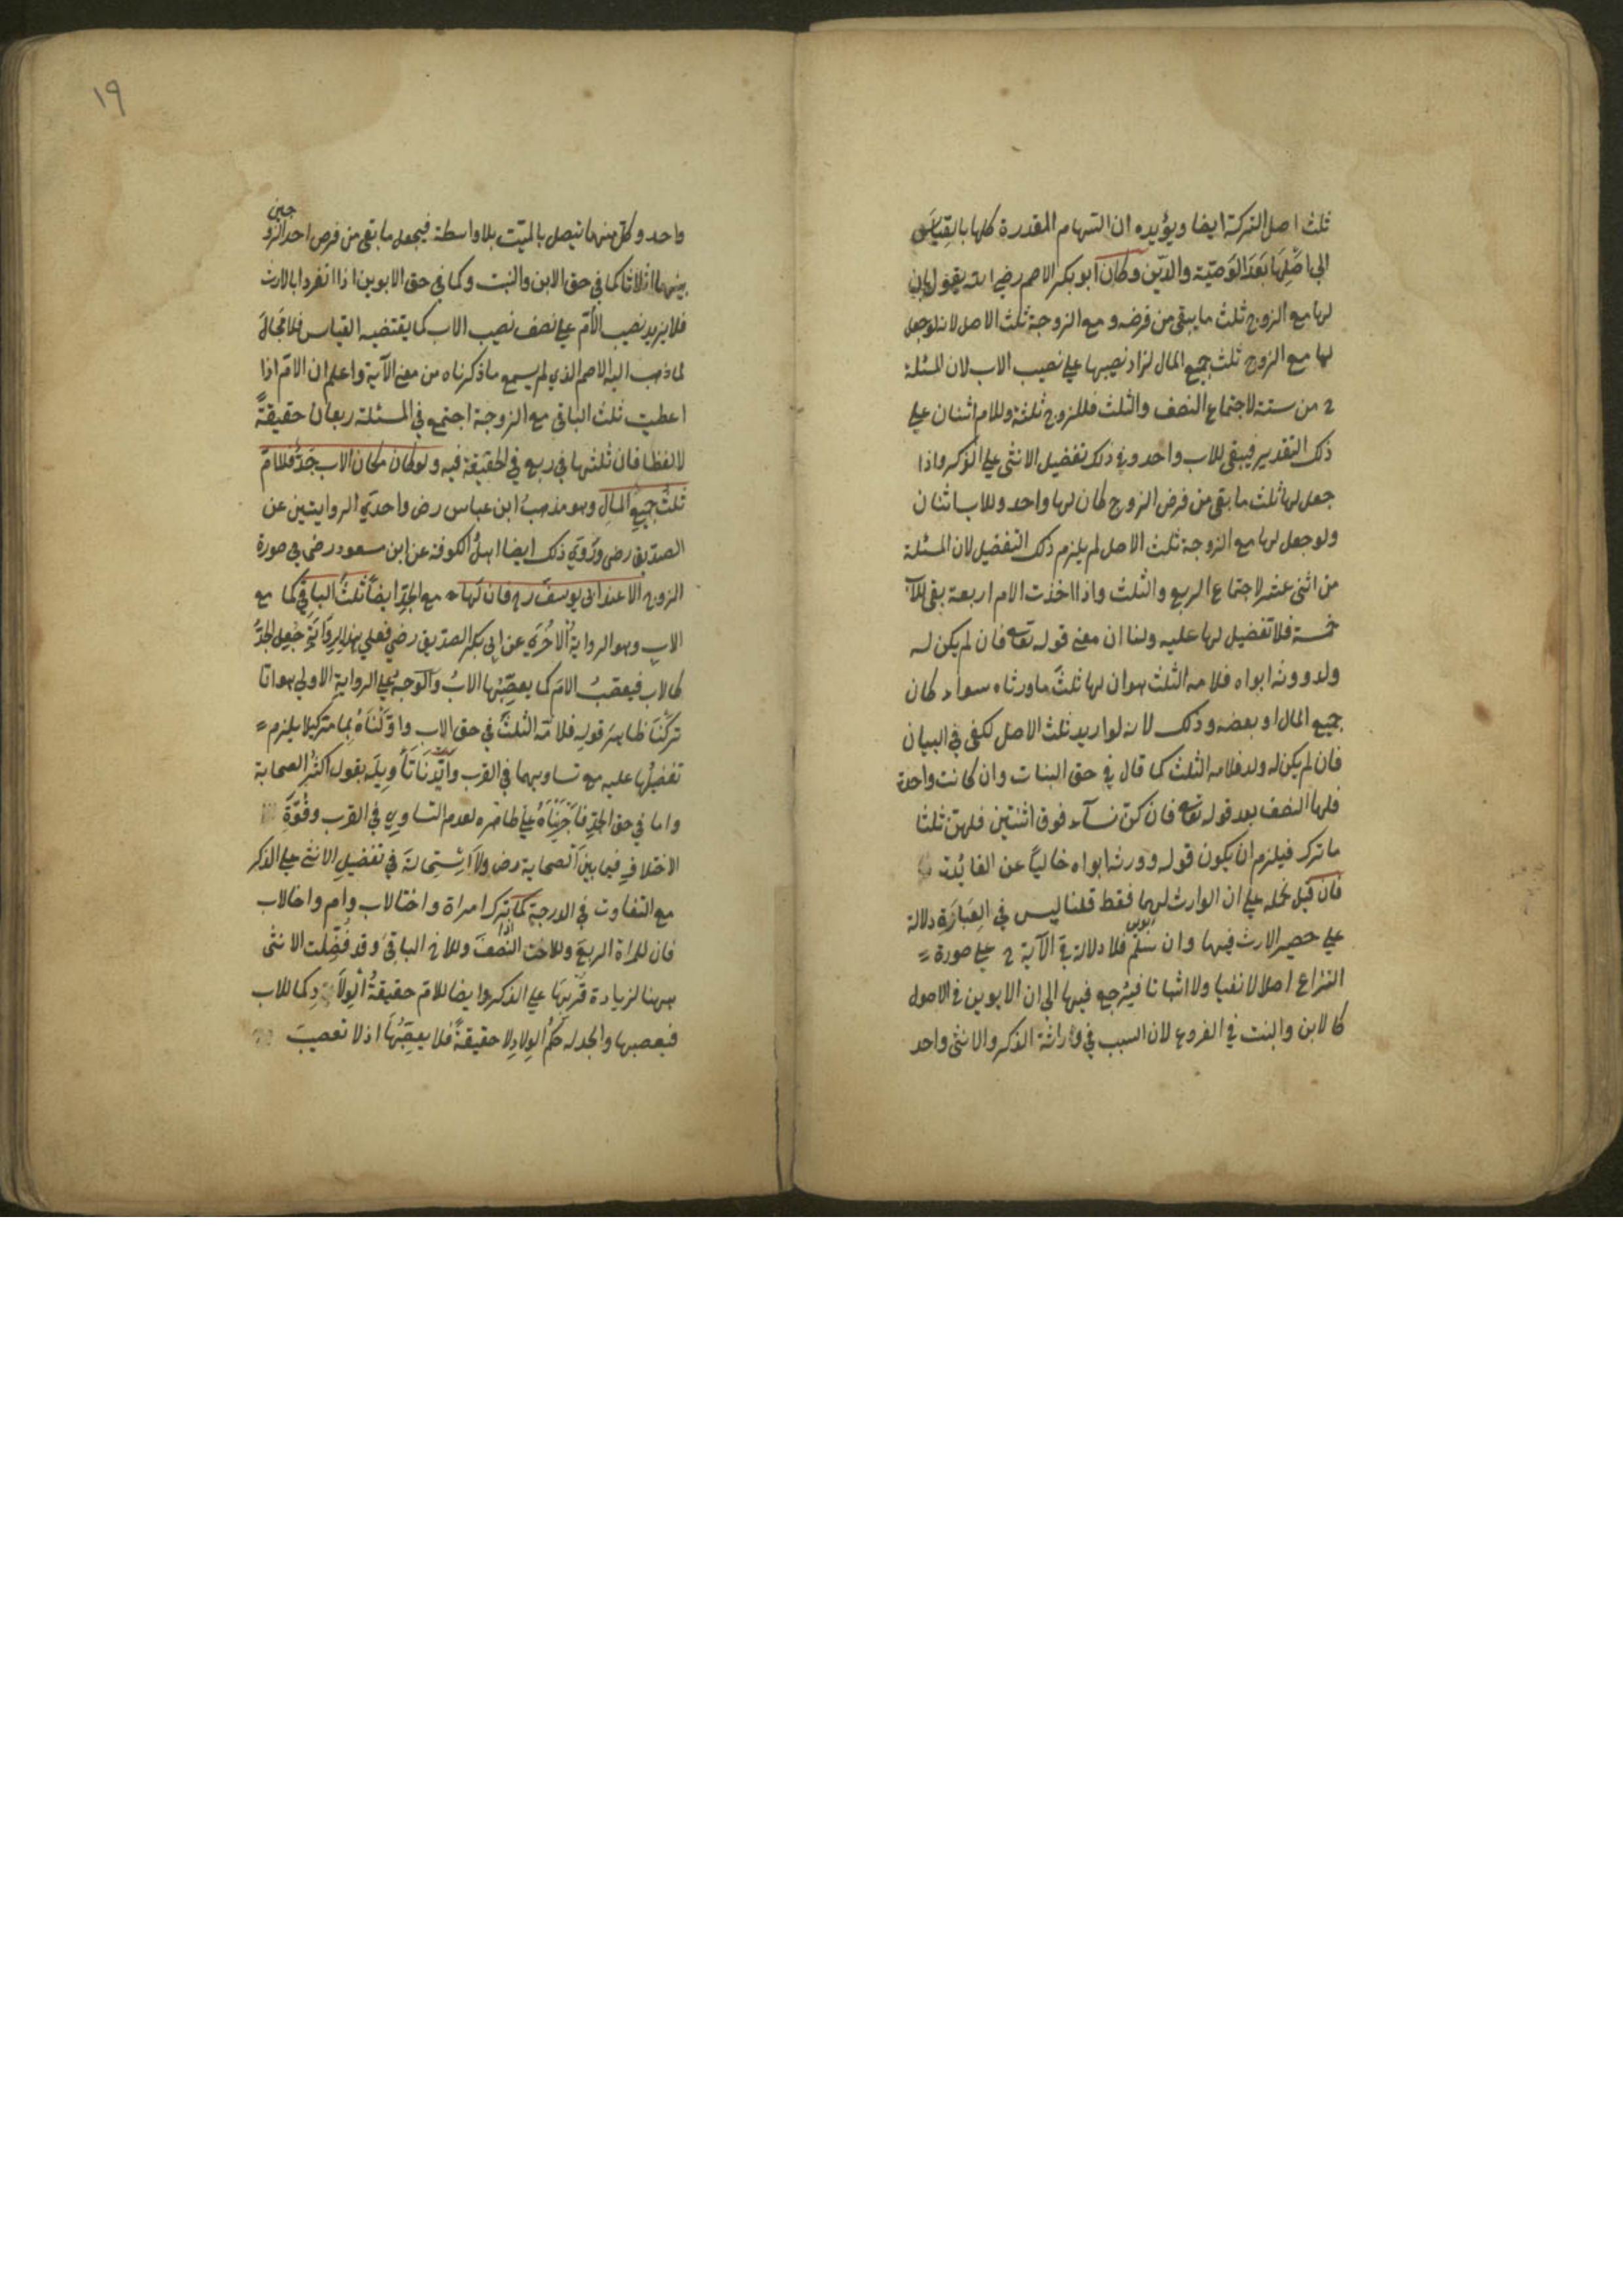 ثلث اصل التركة ايضا ويؤيده ان السهام المقدرة كلها بالقياس
الى اصلها بعد الوصية والدين وكان ابو بكر الاصم رضي الله يقول بان
لها مع الزوج ثلث ما يبقى من فرضه و مع الزوجة ثلث الاصل لانه لو جعل
لها مع الزوج ثلث جميع المال لزاد نصيبها على نصيب الاب لان المسئلة
ح من ستة لاجتماع النصف والثلث فللزوج ثلثة وللام اثنان على
ذلك التقدير فيبقى للاب واحد وفي ذلك تفضيل الانثى على الذكر واذا
جعل لها ثلث ما بقى من فرض الزوج كان لها واحد وللاب اثنان
ولو جعل لها مع الزوجة ثلث الاصل لم يلزم ذلك التفضيل لان المسئلة
من اثنى عشر لاجتماع الربع والثلث واذا اخذت الام اربعة بقى للاب
خمسة فلا تفضيل لها عليه ولنا ان معنى قوله تعا فان لم يكن له
ولد وورثه ابواه فلامه الثلث هو ان لها ثلث ما ورثاه سواء كان
جميع المال او بعضه وذلك لانه لو اريد ثلث الاصل لكفى في البيان
فان لم يكن له ولد فلامه الثلث كما قال في حق البنات وان كانت واحدة
فلها النصف بعد قوله تعا فان كن نساء فوق اثنتين فلهن ثلثا
ما ترك فيلزم ان يكون قوله وورثه ابواه خاليا عن الفائدة
فان قيل نحمله على ان الوارث لهما فقط قلنا ليس في العبارة دلالة
على حصر الارث فيهما وان سلم فلا دلالة في الآية ح على صورة
ابوين
النزاع اصلا لا نفيا ولا اثباتا فيرجع فيها الى ان الابوين في الاصول
كالابن والبنت في الفروع لان السبب في وراثة الذكر والانثى واحد
١٩
واحد وكل منهما يتصل بالميت بلا واسطة فيجعل ما بقى من فرض احد الزوجين
بينهما اثلاثا كما في حق الابن والبنت وكما في حق الابوين اذا انفردا بالارث
فلا يزيد نصيب الأم على نصف نصيب الاب كما يقتضيه القياس فلا مجال
لما ذهب اليه الاصم الذي لم يسمع ما ذكرناه من معنى الآية واعلم ان الام اذا
اعطيت ثلث الباقى مع الزوجة اجتمع في المسئلة ربعان حقيقة
لا لفظا فان ثلثها في ربع في الحقيقة فيه ولو كان مكان الاب جد فللام
ثلث جميع المال وهو مذهب ابن عباس رض واحدي الروايتين عن
الصديق رضى وروي ذلك ايضا اهل الكوفة عن ابن مسعود رضى في صورة
الزوج الا عند ابي يوسف رح فان لها مع الجد ايضا ثلث الباقي كما مع
الاب وهو الرواية الاخرى عن ابي بكر الصديق رضي فعلى هذا الرواية جعل الجد
كالاب فيعصب الام كما يعصبها الاب والوجه على الرواية الاولى هو انا
تركنا ظاهر قوله فلامه الثلث في حق الاب واولناه بما مر كيلا يلزم
تفضيلها عليه مع تساويهما في القرب وايدنا تأويله بقول اكثر الصحابة
واما في حق الجد فاجريناه على ظاهره لعدم التساوي في القرب وقوة
الاختلاف فيما بين الصحابة رض ولا استحالة في تفضيل الانثى على الذكر
مع التفاوت في الدرجة كما اذا ترك امراة واختا لاب وام واخا لاب
فان للمراة الربع وللاخت النصف وللاخ الباقي وقد فضلت الانثى
ههنا لزيادة قربها على الذكر وايضا للام حقيقة الولاد كما للاب
فيعصبها والجد له حكم الولاد لا حقيقة فلا يعصبها اذ لا تعصيب